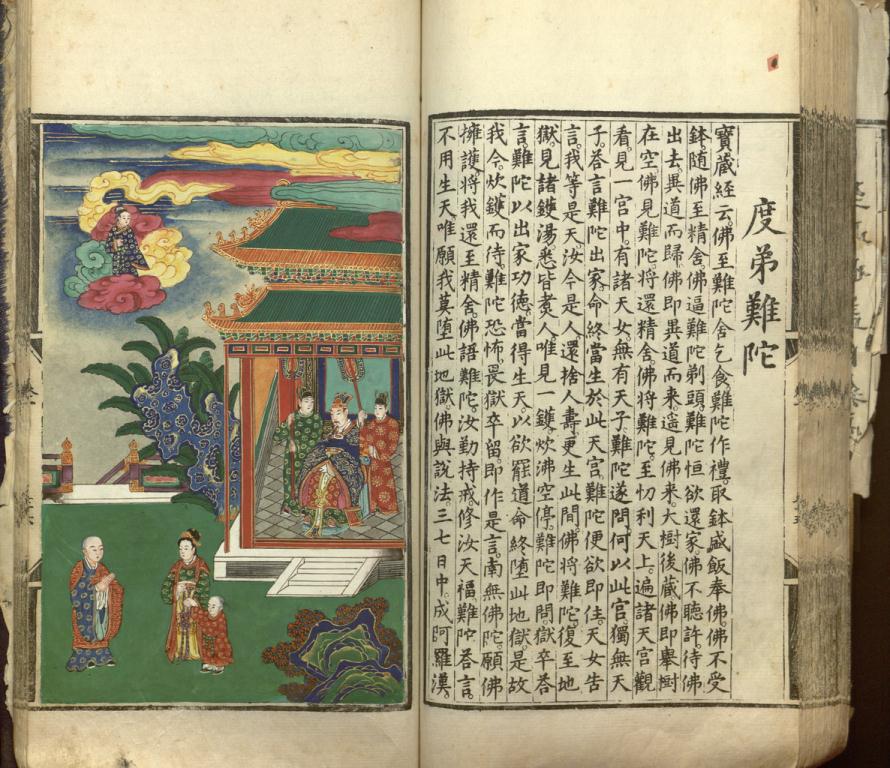 度弟難陀
寶藏經云。佛至難陀舍乞食。難陀作禮。取鉢盛飯奉佛。佛不受
鉢。隨佛至精舍。佛逼難陀剃頭。難陀恒欲還家。佛不聽許。待佛
出去。異道而歸。佛即異道而來。遥見佛來。大樹後藏。佛即舉樹
在空。佛見難陀。將還精舍。佛將難陀。至忉利天上。遍諸天宮。觀
看見一宮中。有諸天女。無有天子。難陀遂問。何以此宮。獨無天
子。荅言難陀出家。命終當生於此天宮。難陀便欲即住。天女告
言。我等是天。汝今是人。還捨人壽。更生此間。佛將難陀。復至地
獄。見諸鑊湯。悉皆煑人。唯見一鑊。炊沸空停。難陀即問。獄卒荅
言。難陀以出家功德。當得生天。以欲罷道。命終墮此地獄。是故
我今炊鑊而待。難陀恐怖。畏獄卒留。即作是言。南無佛陀。願佛
擁護。將我還至精舍。佛語難陀。汝勤持戒。修汝天福。難陀荅言。
不用生天。唯願我莫墮此地獄。佛與說法。三七日中。成阿羅漢